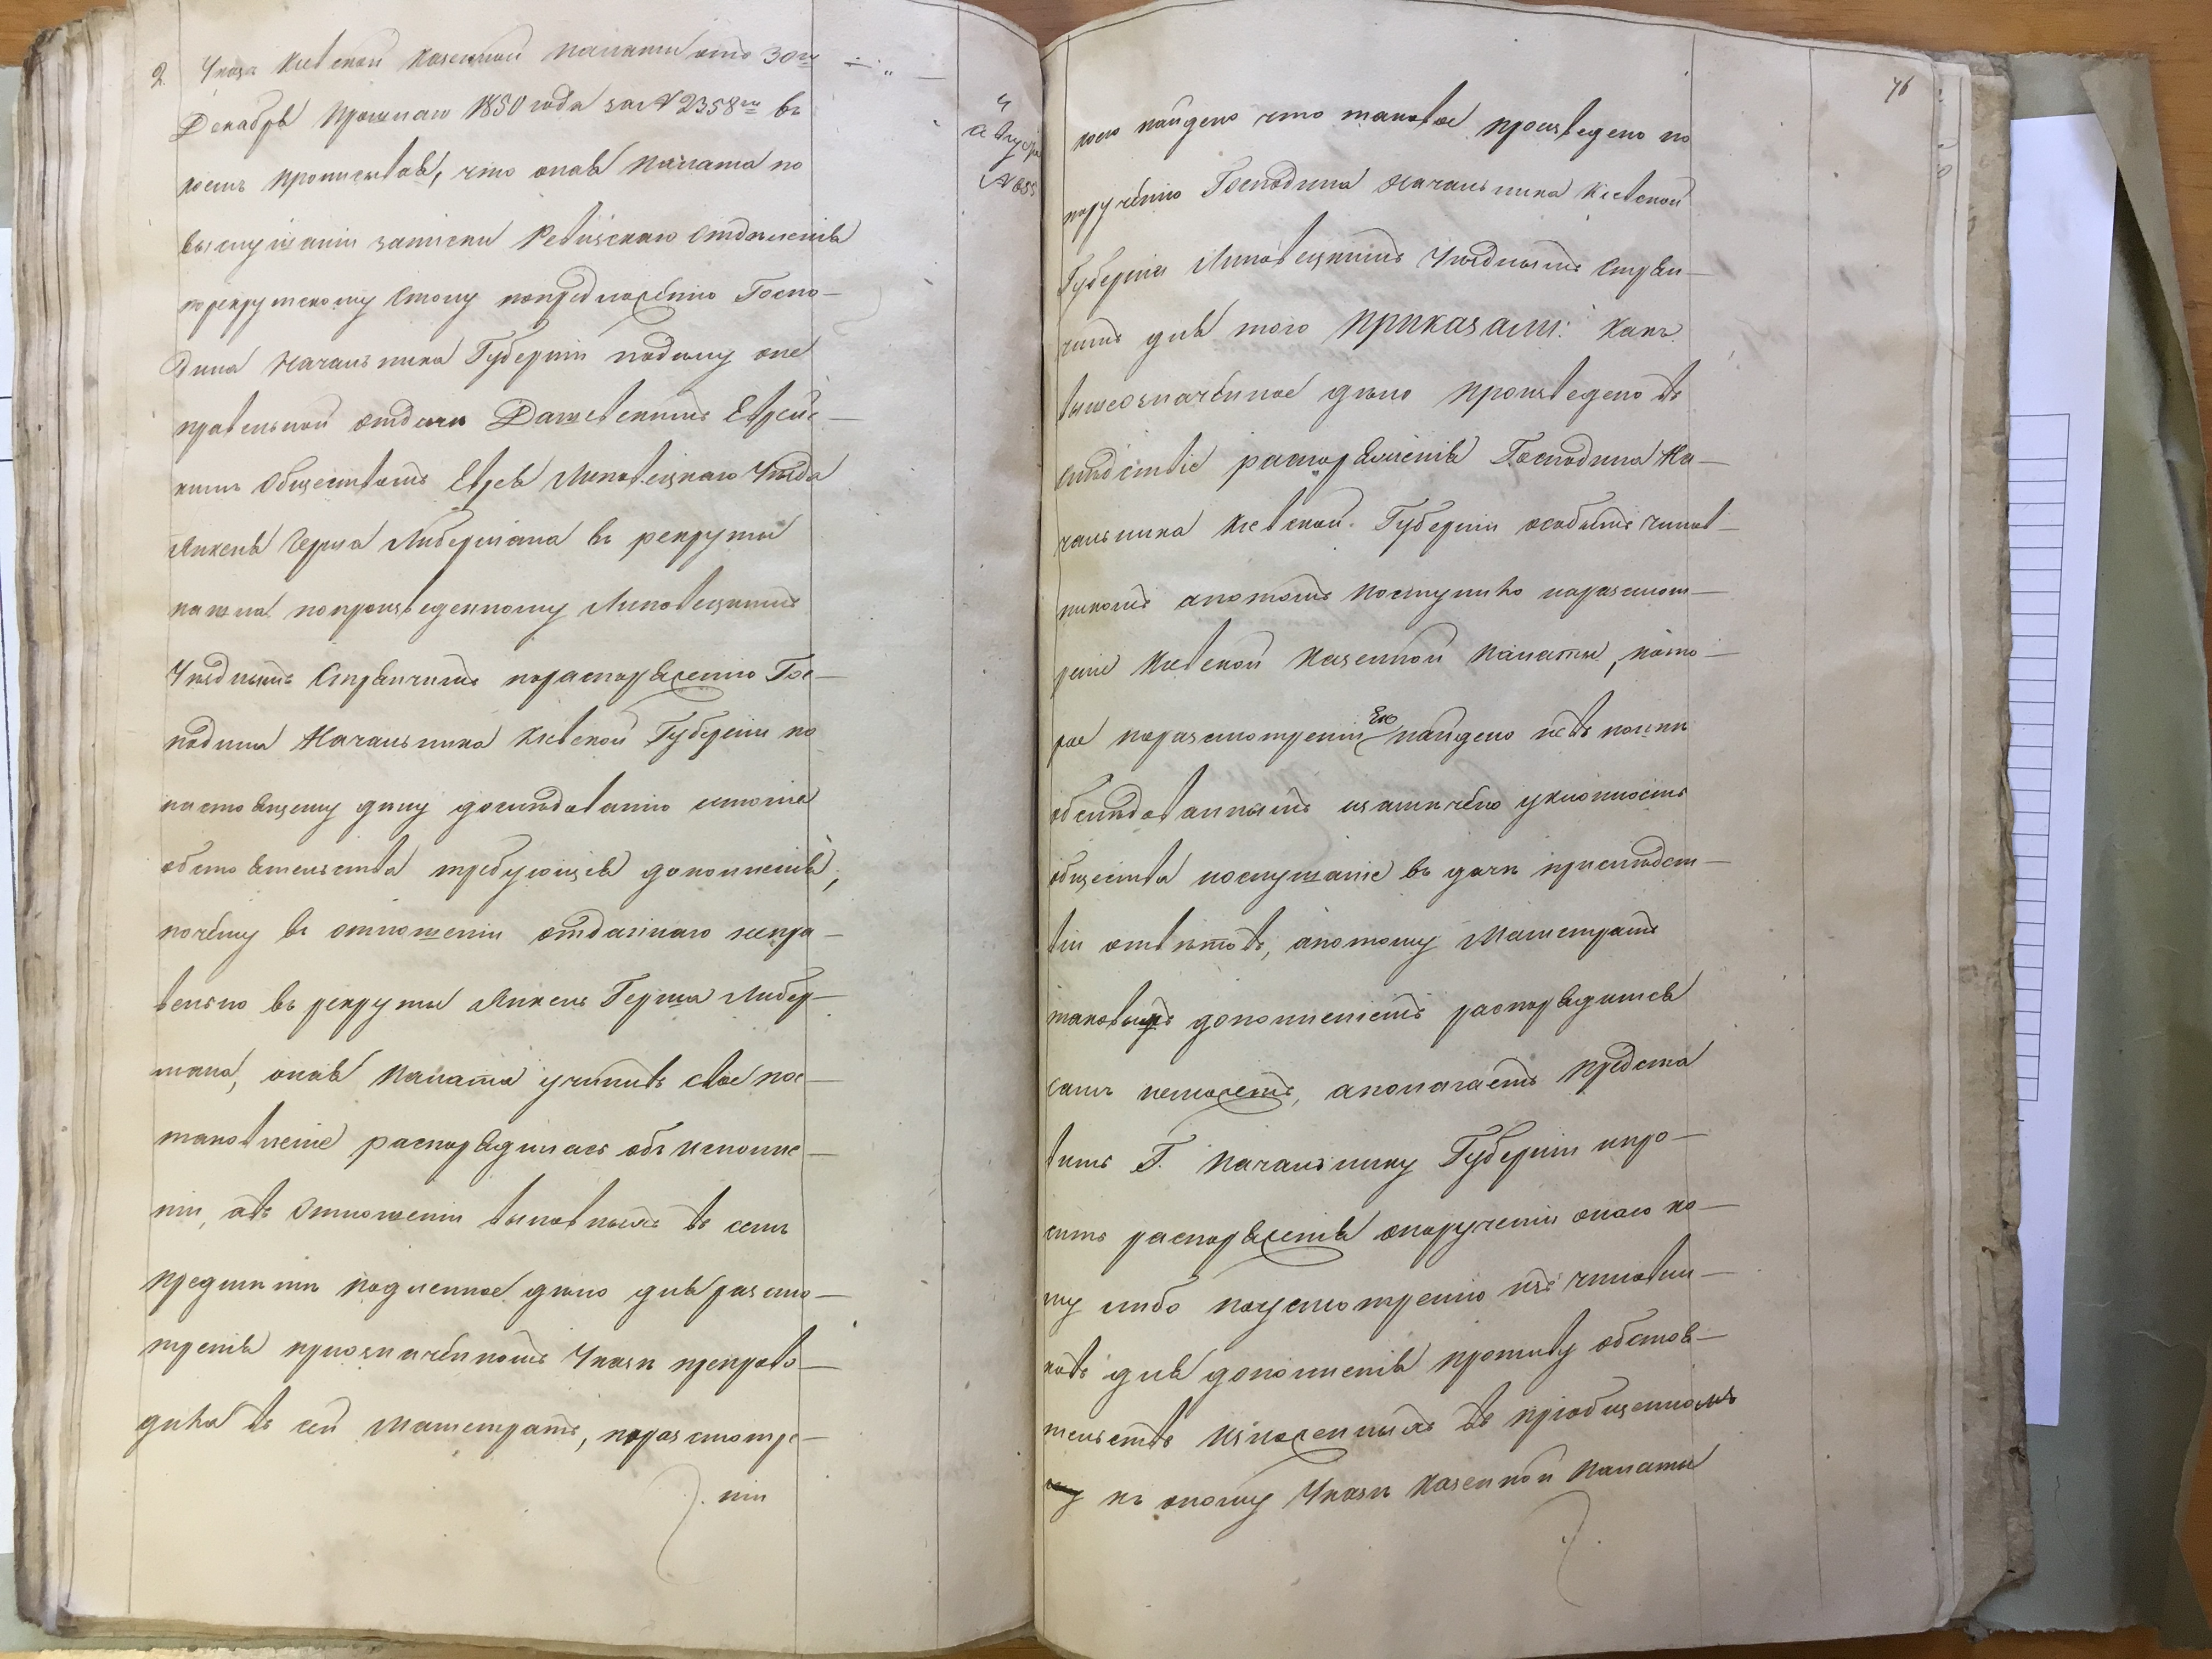 2. Указа Кіевской Казенной Палаты отъ 30го
Декабря прошлаго 1850 года за № 2358м въ
коемъ прописывая, что оная Палата по
выслушаніи записки Ревизскаго Отделенія
порекрутскому Столу попредложенію Госпо-
дина Начальника Губерніи поделу о не
правельной отдачи Дашевскимъ Еврейс-
кимъ Обществомъ Еврея Липовецкаго Уезда
Янкеля Герша Либермана въ рекруты
нашла попроизведенному Липовецкимъ
Уезднымъ Стряпчимъ пораспоряженію Гос-
подина Начальника Кіевской Губерніи по
настоящему делу доследованію многіе
обстоятельства требующія дополненія,
почему въ отношеніи отданнаго непра-
вельно въ рекруты Янкель Герша Либер-
мана, оная Палата учинивъ свое пос-
тановленіе распорядилась объ исполне-
ніи, авъ Отношеніи виновныхъ въ семъ
предметѣ подленное дѣло для разсмо-
тренія приозначенномъ Указѣ препрово-
дила въ сей Магистратъ, поразсмотре-
ніи
4
Августа
№ 855
76
коего найдено что таковое произведено по
порученію Господина Начальника Кіевской
Губерніи Липовецкимъ Уезднымъ Стряп-
чимъ для того приказали: Какъ
вышеозначенное дѣло произведено въ
следствіе распоряженія Господина На-
чальника Кіевской Губерніи особымъ чинов-
никомъ апотомъ поступило наразсмот-
реніе Кіевской Казенной Палаты, кото-
рое поразсмотреніи Ею найдено невъ полнѣ
обследованнымъ изамечено уклонность
общества и ослушаніе въ дачи приследст-
віи ответовъ, апотому Магистратъ
таковымъ дополненіемъ распорядится
самъ неможетъ, аполагаетъ предста
вить Г. Начальнику Губерніи ипро-
сить распоряженія опорученіи онаго ко-
му либо поусмотренію изъ чиновни-
ковъ для дополненія противу обстоя-
тельствъ изложенныхъ въ приобщенномъ
къ оному Указѣ Казенной Палаты